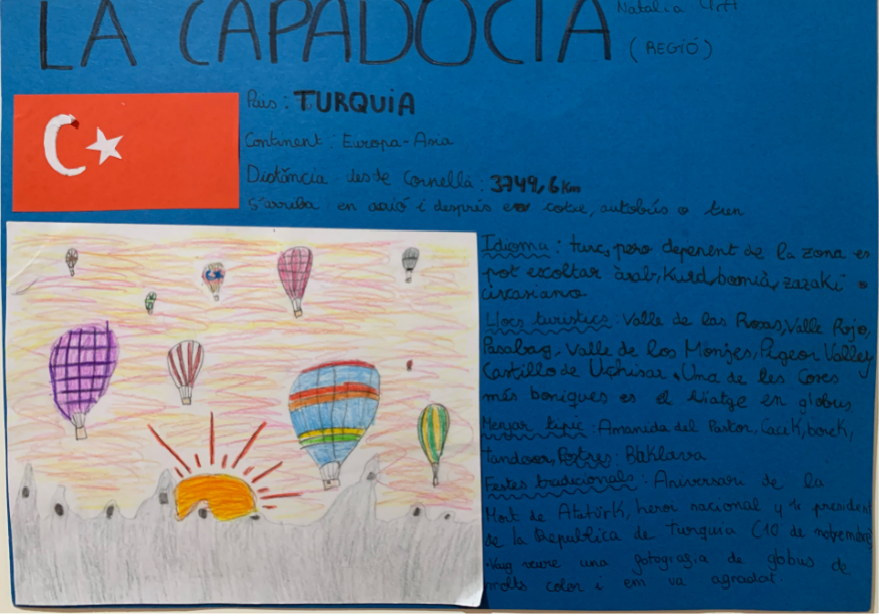 LA CAPADOCIA
Natalia
(REGIÓ)
País: TURQUIA
Continent: Europa-Asia
Distància desde Cornellà: 3749,6 Km
S'arriba en avió i després en cotxe, autobús o tren
Idioma: turc, pero depenent de la zona es
pot escoltar àrab, Kurd, bosnià, zazaki o
circasiano.
Llocs turistics: Valle de las Rosas, Valle Rojo,
Pasabag, Valle de los Monjes, Pigeon Valley
Castillo de Uchisar. Una de les Coses
més boniques es el Viatge en globus
Menjar típic: Amanida del Pastor, Cacik, borek,
tandoor, Postres: Baklava
Festes tradicionals: Aniversari de la
Mort de Atatürk, heroi nacional y 1r president
de la Republica de Turquia (10 de novembre)
Vaig veure una fotografia de globus de
molts colors i em va agradar.